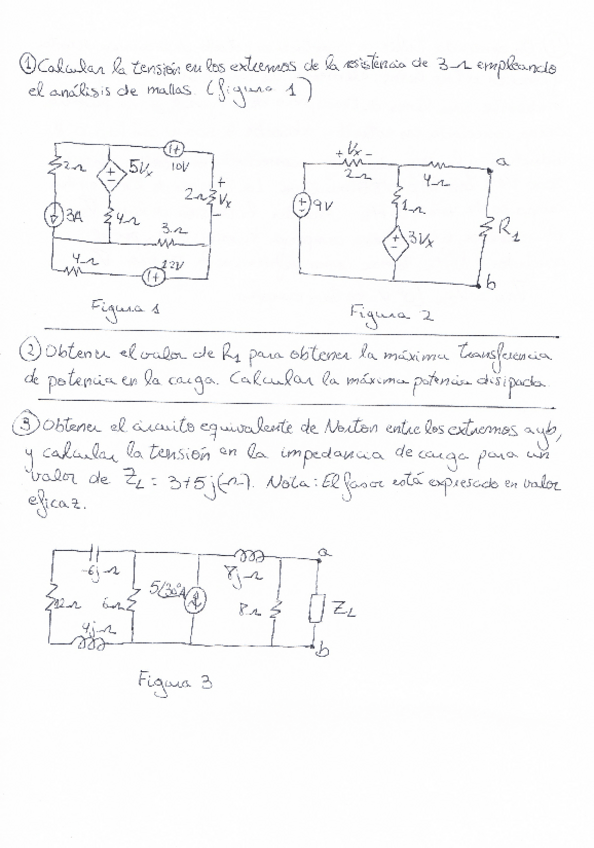 ① Calcular la tensión en los extremos de la resistencia de 3Ω empleando
el análisis de mallas (figura 1)
2Ω
5Vx
10V
2Ω
+
Vx
-
3A
4Ω
3Ω
4Ω
12V
Figura 1
+ Vx -
2Ω
4Ω
a
9V
1Ω
3Vx
R1
b
Figura 2
② Obtener el valor de R1 para obtener la máxima transferencia
de potencia en la carga. Calcular la máxima potencia disipada.
③ Obtener el circuito equivalente de Norton entre los extremos a y b,
y calcular la tensión en la impedancia de carga para un
valor de ZL = 3+5j(Ω). Nota: El fasor está expresado en valor
eficaz.
-6j Ω
12Ω
6Ω
4j Ω
5/30°A
8j Ω
8Ω
a
ZL
b
Figura 3